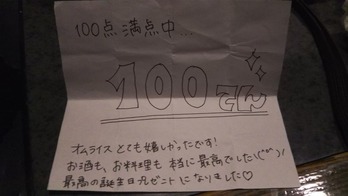 100点満点中...
100てん
オムライスとても嬉しかったです!
お酒も、お料理も本当に最高でした\(^^)/
最高の誕生日プレゼントになりました♡